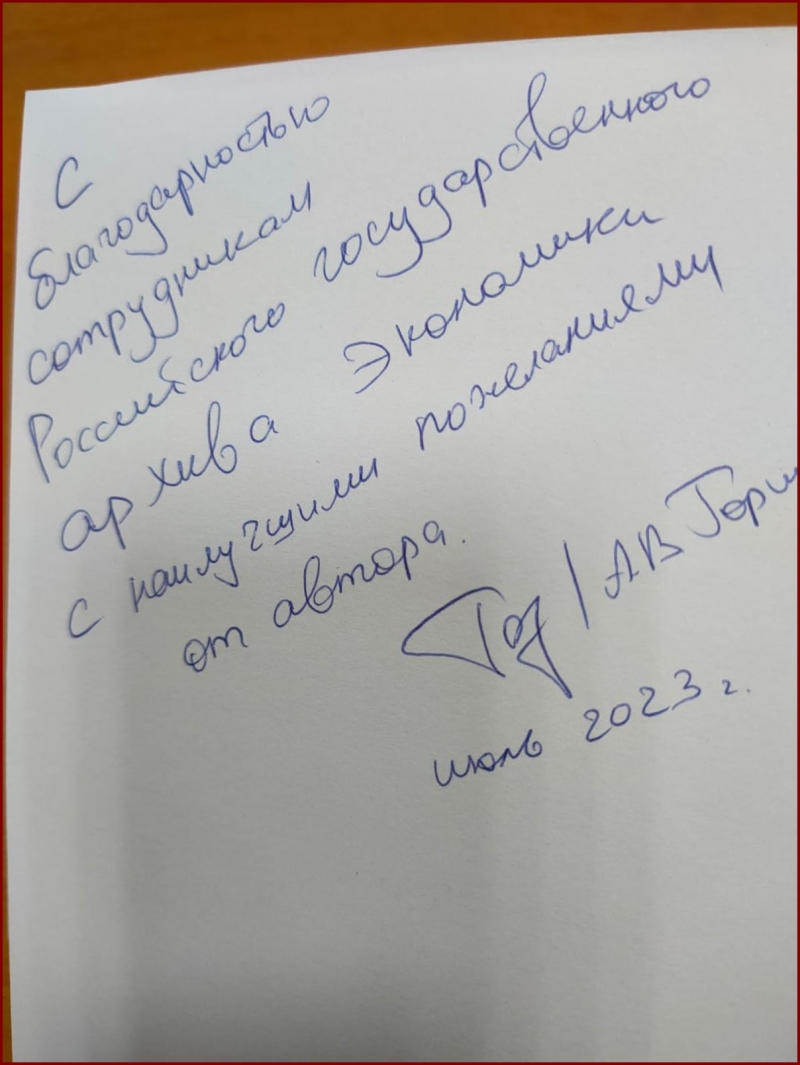 С
благодарностью
сотрудникам
Российского государственного
архива Экономики
с наилучшими пожеланиями
от автора.
/ АВ
июль 2023 г.